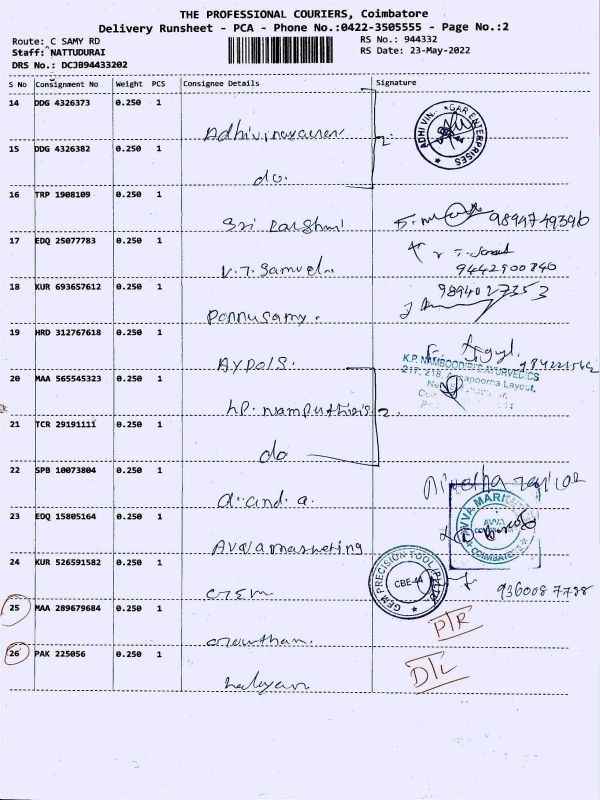 THE PROFESSIONAL COURIERS, Coimbatore
Delivery Runsheet - PCA - Phone No.:0422-3505555 - Page No.:2
Route: C SAMY RD
RS No.: 944332
Staff: NATTUDURAI
RS Date: 23-May-2022
DRS No.: DCJB94433202
S No Consignment No Weight PCS Consignee Details Signature
14 DDG 4326373 0.250 1
Adhivinayanan 2
ADHI VIN GAR ENTERPRISES
15 DDG 4326382 0.250 1
do.
16 TRP 1908109 0.250 1
Sri Lakshmi 9894749396
17 EDQ 25077783 0.250 1
V.T. Samuel.
9442900840
18 KUR 693657612 0.250 1
Ponnusamy. 9894027353
19 HRD 312767618 0.250 1
Aypols.
K.P. NAMBOODIRI'S AYURVEDICS
217, 218, Layout,
20 MAA 565545323 0.250 1
k.p. Namputhiris 2
21 TCR 29191111 0.250 1
do
22 SPB 10073804 0.250 1
23 EDQ 15805164 0.250 1
Avvamarketing
AVVA COIMBATORE
24 KUR 526591582 0.250 1
GEM PRECISION TOOL (P) LTD
CBE-44
9360087788
25 MAA 289679684 0.250 1
PTR
26 PAK 225056 0.250 1
DTL